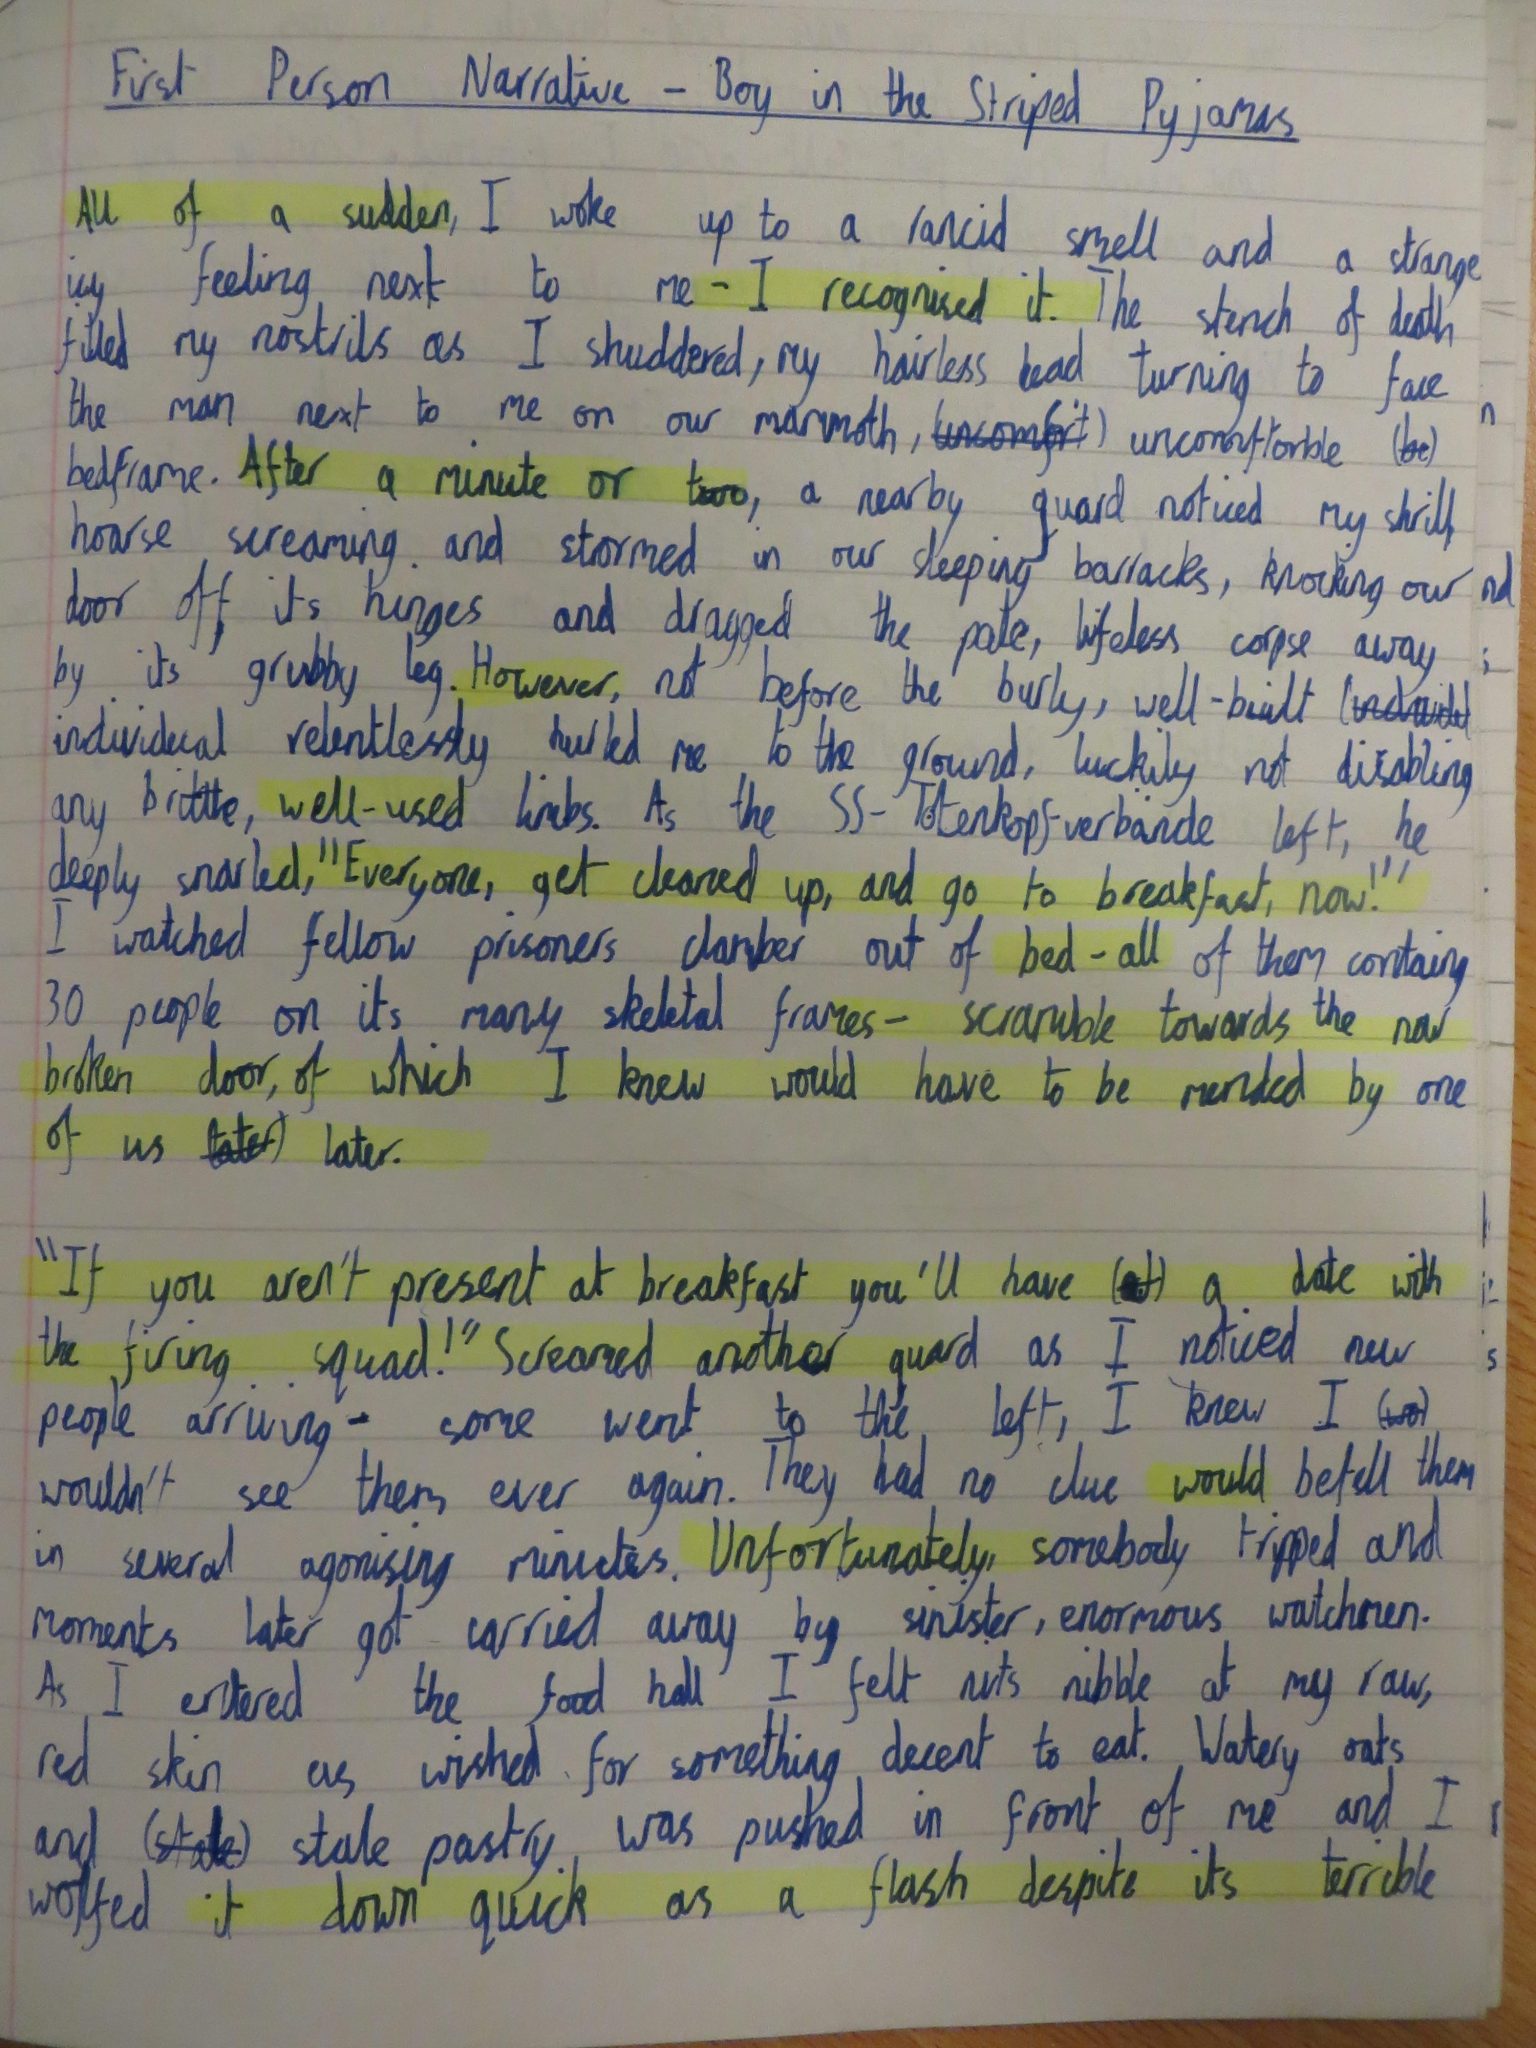 First Person Narrative - Boy in the Striped Pyjamas
All of a sudden, I woke up to a rancid smell and a strange
icy feeling next to me - I recognised it. The stench of death
filled my nostrils as I shuddered, my hairless head turning to face
the man next to me on our mammoth, (uncomfort) uncomftorble (be)
bedframe. After a minute or two, a nearby guard noticed my shrill,
hoarse screaming and stormed in our sleeping barracks, knocking our
door off its hinges and dragged the pale, lifeless corpse away
by its grubby leg. However, not before the burly, well-built
individual relentlessly hurled me to the ground, luckily not disabling
any brittle, well-used limbs. As the SS-Totenkopf-verbande left, he
deeply snarled, "Everyone, get cleaned up, and go to breakfast, now!"
I watched fellow prisoners clamber out of bed - all of them containg
30 people on its many skeletal frames - scramble towards the now
broken door, of which I knew would have to be mended by one
of us (later) later.
"If you aren't present at breakfast you'll have a date with
the firing squad!" Screamed another guard as I noticed new
people arriving - some went to the left, I knew I (wo)
wouldn't see them ever again. They had no clue would befell them
in several agonising minutes. Unfortunately, somebody tripped and
moments later got carried away by sinister, enormous watchmen.
As I entered the food hall I felt nits nibble at my raw,
red skin as wished for something decent to eat. Watery oats
and (stale) stale pastry was pushed in front of me and I
wolfed it down quick as a flash despite its terrible